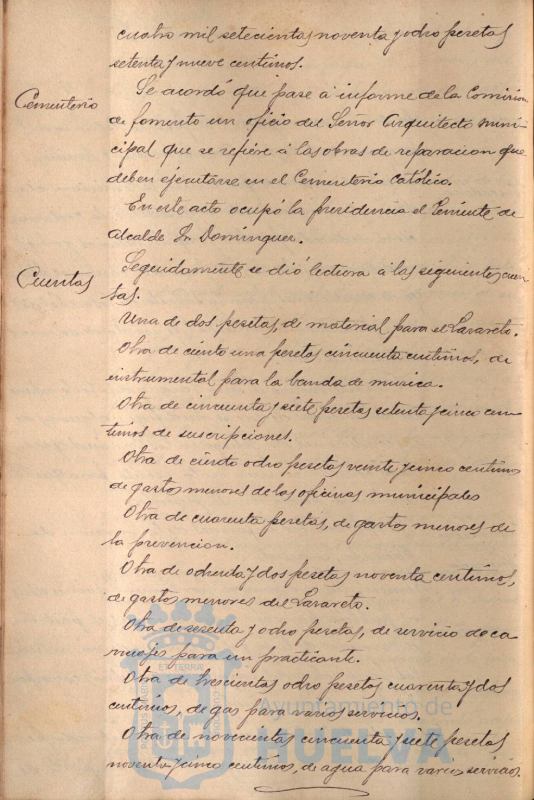 cuatro mil setecientas noventa y ocho pesetas
setenta y nueve centimos.
Cementerio
Se acordó que pase á informe de la Comision
de fomento un oficio del Señor Arquitecto muni-
cipal que se refiere á las obras de reparacion que
deben ejecutarse en el Cementerio Católico.
En este acto ocupó la presidencia el Teniente de
Alcalde Sr. Dominguez.
Cuentas
Seguidamente se dió lectura á las siguientes cuen-
tas.
Una de dos pesetas, de material para el Lazareto.
Otra de ciento una pesetas cincuenta centimos, de
instrumental para la banda de musica.
Otra de cincuenta y siete pesetas setenta y cinco cen-
timos de suscripciones.
Otra de ciento ocho pesetas veinte y cinco centimos
de gastos menores de las oficinas municipales
Otra de cuarenta pesetas, de gastos menores de
la prevencion.
Otra de ochenta y dos pesetas noventa centimos,
de gastos menores del Lazareto.
Otra de sesenta y ocho pesetas, de servicio de ca-
rruajes para un practicante.
Otra de trescientas ocho pesetas cuarenta y dos
centimos, de gas para varios servicios.
Otra de novecientas cincuenta y siete pesetas
noventa y cinco centimos, de agua para varios servicios.
Ayuntamiento de
HUELVA